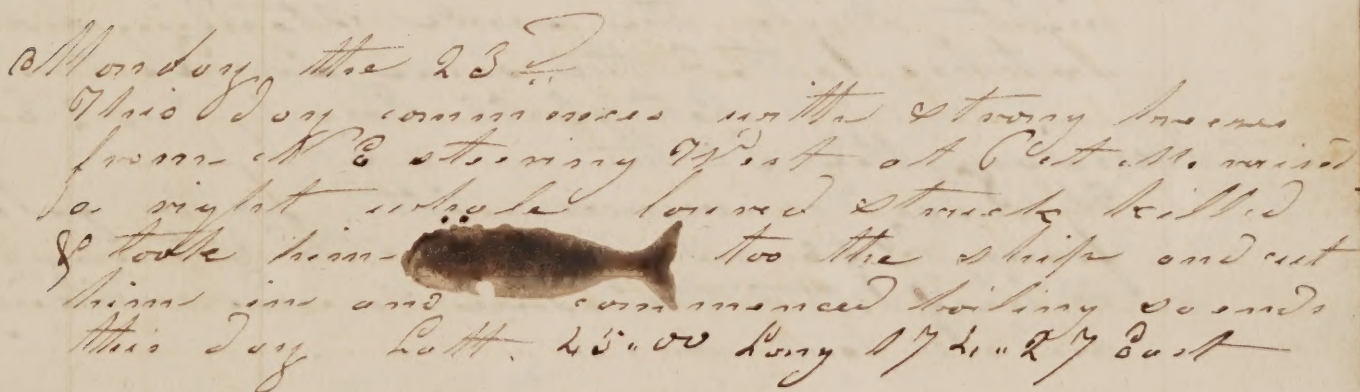 Monday the 23d
This day commences with strong breeses
from N E steering West at 6 A.M. raised
a right whale loured struck killed
& took him too the ship and cut
him in and commenced boiling so ends
this day Latt. 45..00 Long 174..27 East